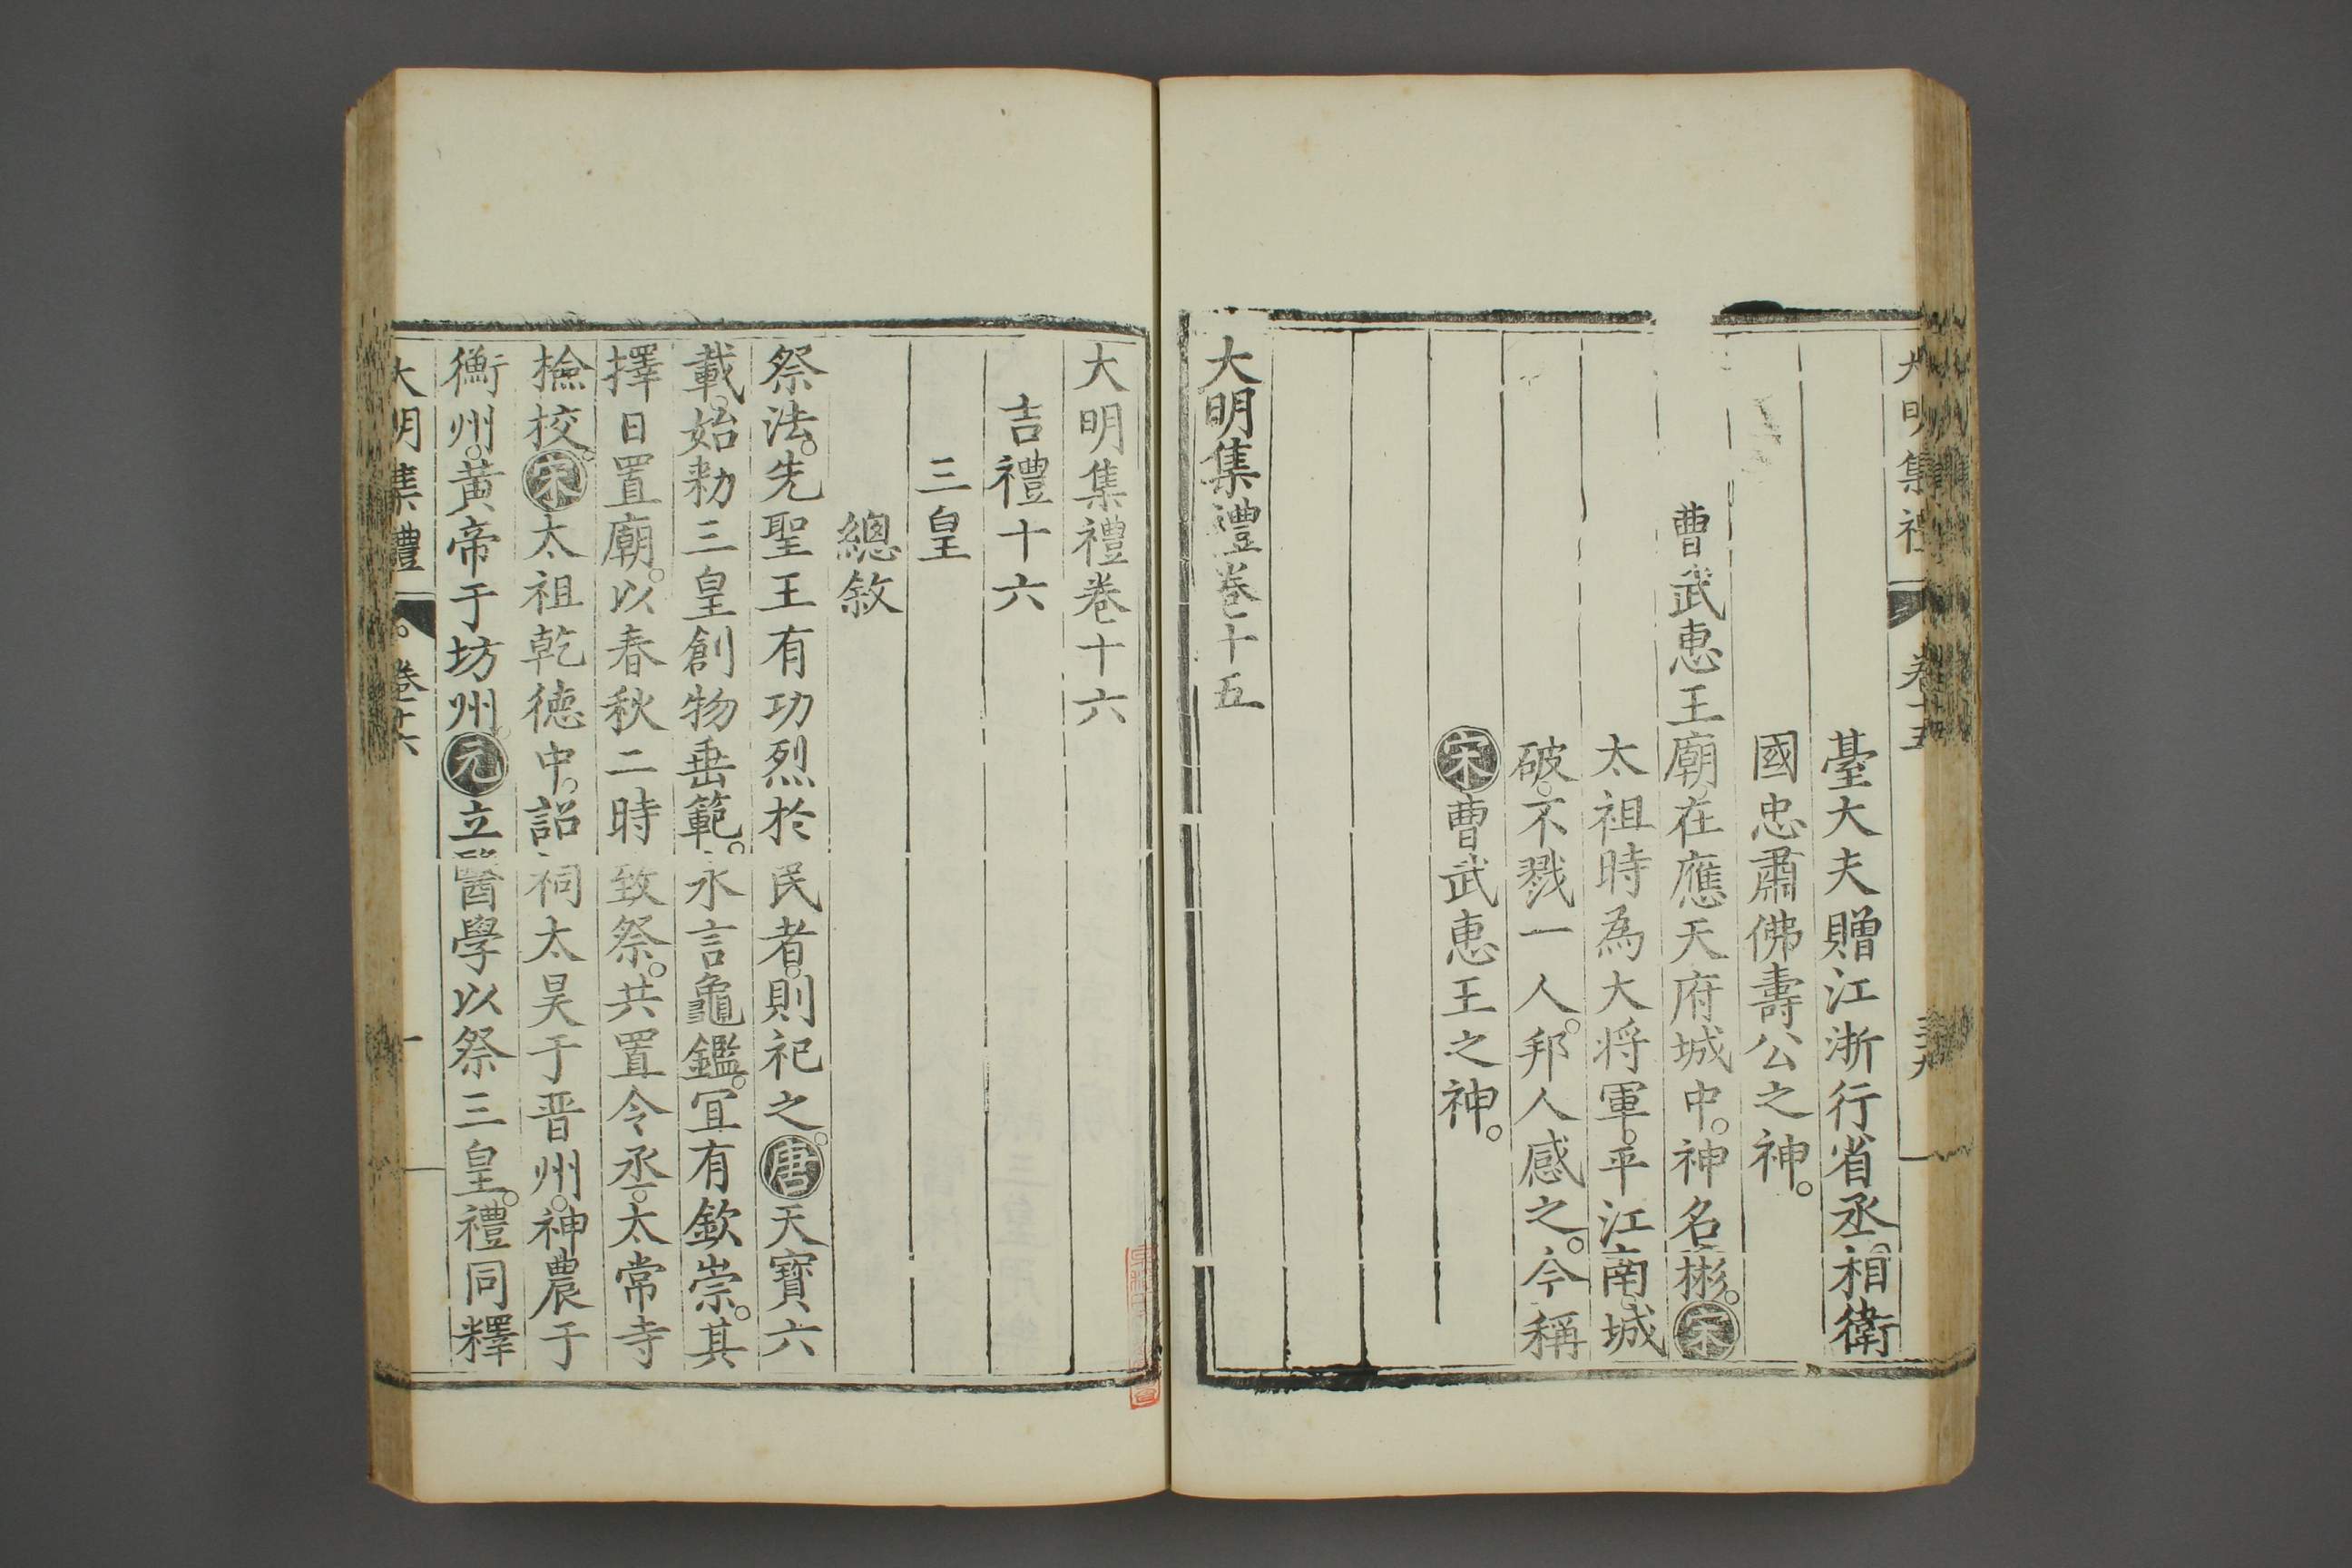 大明集禮 卷十五
臺大夫贈江浙行省丞相衛
國忠肅佛壽公之神。
曹武惠王廟。在應天府城中。神名彬。宋
太祖時為大将軍。平江南。城
破。不戮一人。邦人感之。今稱
宋曹武惠王之神。
大明集禮卷十五
大明集禮卷十六
吉禮十六
三皇
總敘
祭法。先聖王有功烈於民者。則祀之。唐天寳六
載。始勑三皇創物垂範。永言龜鑑。冝有欽崇。其
擇日置廟。以春秋二時致祭。共置令丞。太常寺
撿校。宋太祖乾德中。詔祠太昊于晋州。神農于
衡州。黃帝于坊州。元立醫學以祭三皇。禮同釋
大明集禮 卷十六 一